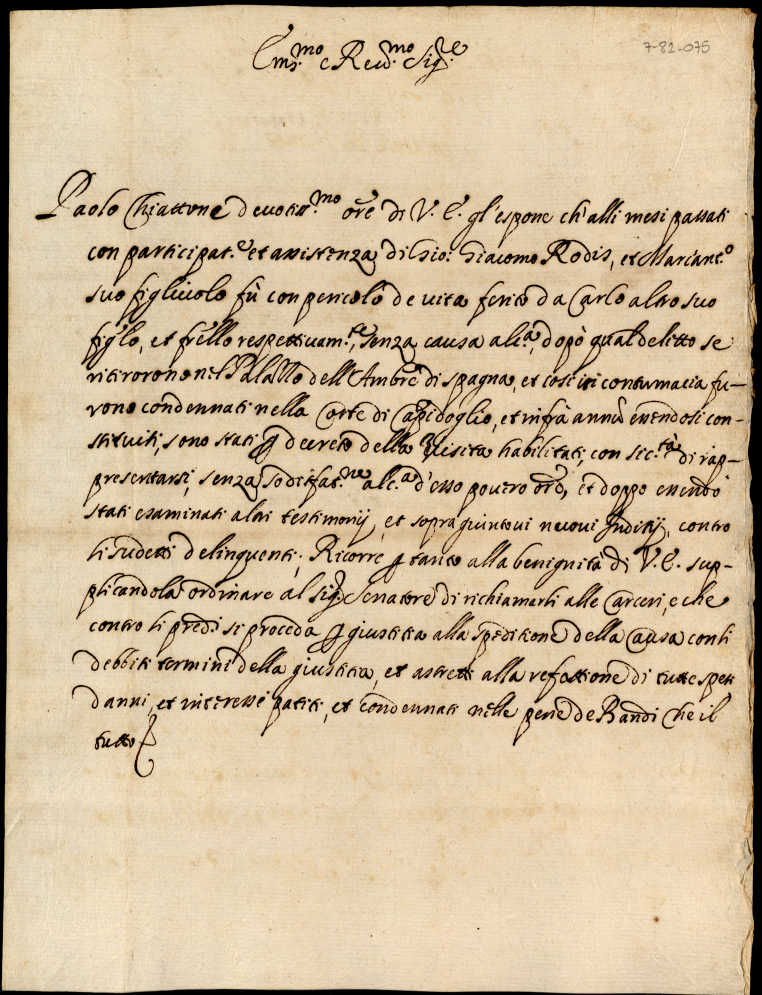 7-82-075
Em.mo e Reu.mo Sig.re
Paolo Chiattone deuotiss.mo ore di V. E. gl'espone ch'alli mesi passati
con participat.e et assistenza di Gio: Giacomo Rodis, et Marcant.o
suo figliuolo fù con pericolo de uita ferito da Carlo altro suo
figlo, et frello respettiuam.te, senza causa alca, dopò qual delitto se
ritirorono nel Palazzo dell'Ambre di spagna, et cosi in contumacia fu-
rono condennati nella Corte di Capidoglio, et infrà annũ essendosi con-
stituiti, sono stati ꝑ decreto della Visita habilitati, con sic.tà di rap-
presentarsi, senza sodisfat.ne alc.a d'esso pouero ore, et doppo essendo
stati esaminati altri testimonij, et sopraguintoui nuoui Inditij, contro
li sudetti delinquenti. Ricorre ꝑ tanto alla benignità di V. E. sup-
plicandola ordinare al Sig.r Senatore di richiamerli alle Carceri, e che
contro li predi si proceda ꝑ giustitia alla speditione della Causa con li
debbiti termini della giustitia, et astretti alla refettione di tutte spese
danni, et interesse patiti, et condennati nelle pene de Bandi che il
tutto